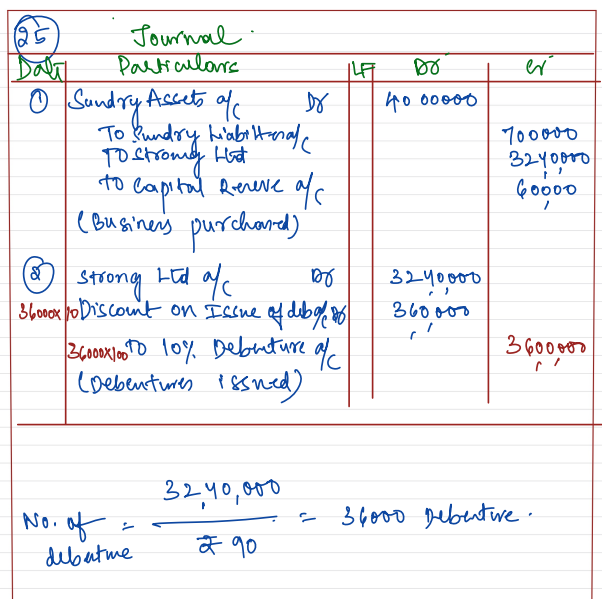 25 Journal
Date Particulars LF Dr Cr
① Sundry Assets a/c Dr 4000000
To Sundry Liabilities a/c 700000
To Strong Ltd 3240,000
To Capital Reserve a/c 60000
(Business purchased)
② Strong Ltd a/c Dr 3240,000
36000x10 Discount on Issue of deb a/c Dr 360,000
36000x100 To 10% Debenture a/c 3600000
(Debentures issued)
3240,000
No. of = = 36000 Debenture.
debenture ₹ 90